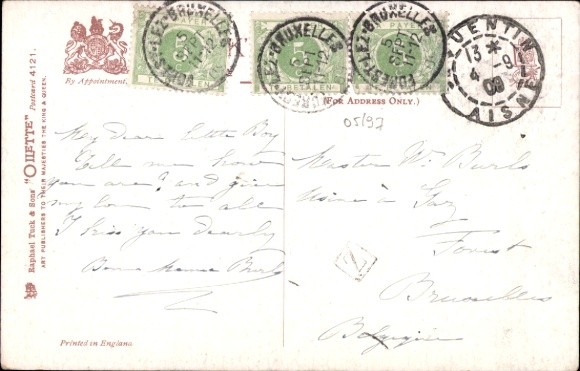 By Appointment.
Raphael Tuck & Sons' "OILETTE" Postcard 4121.
ART PUBLISHERS TO THEIR MAJESTIES THE KING & QUEEN.
Printed in England
(FOR ADDRESS ONLY.)
05/97
My Dear Little Boy
Tell me how
you are? and give
my love to all
I kiss you dearly
Bonne Mama Burls
Master Wm Burls
Usine à Gaz
Forest
Bruxelles
Belgique
Z
FOREST-LEZ-BRUXELLES
5 SEPT 11-12
5
PAYER
BETALEN
FOREST-LEZ-BRUXELLES
5 SEPT 11-12
5
BETALEN
FOREST-LEZ-BRUXELLES
5 SEPT 11-12
PAYER
BETALEN
QUENTIN
13 *
4 -9
09
AISNE